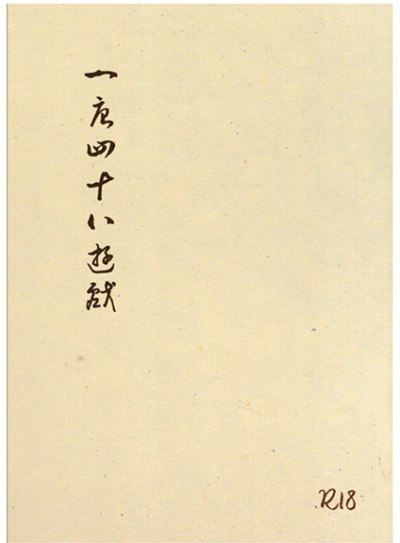 一唐四十八遊戯
R18